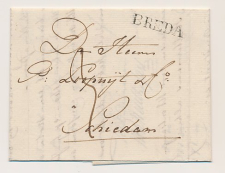 BREDA
De Heeren
P. Loopuijt & Co
Schiedam